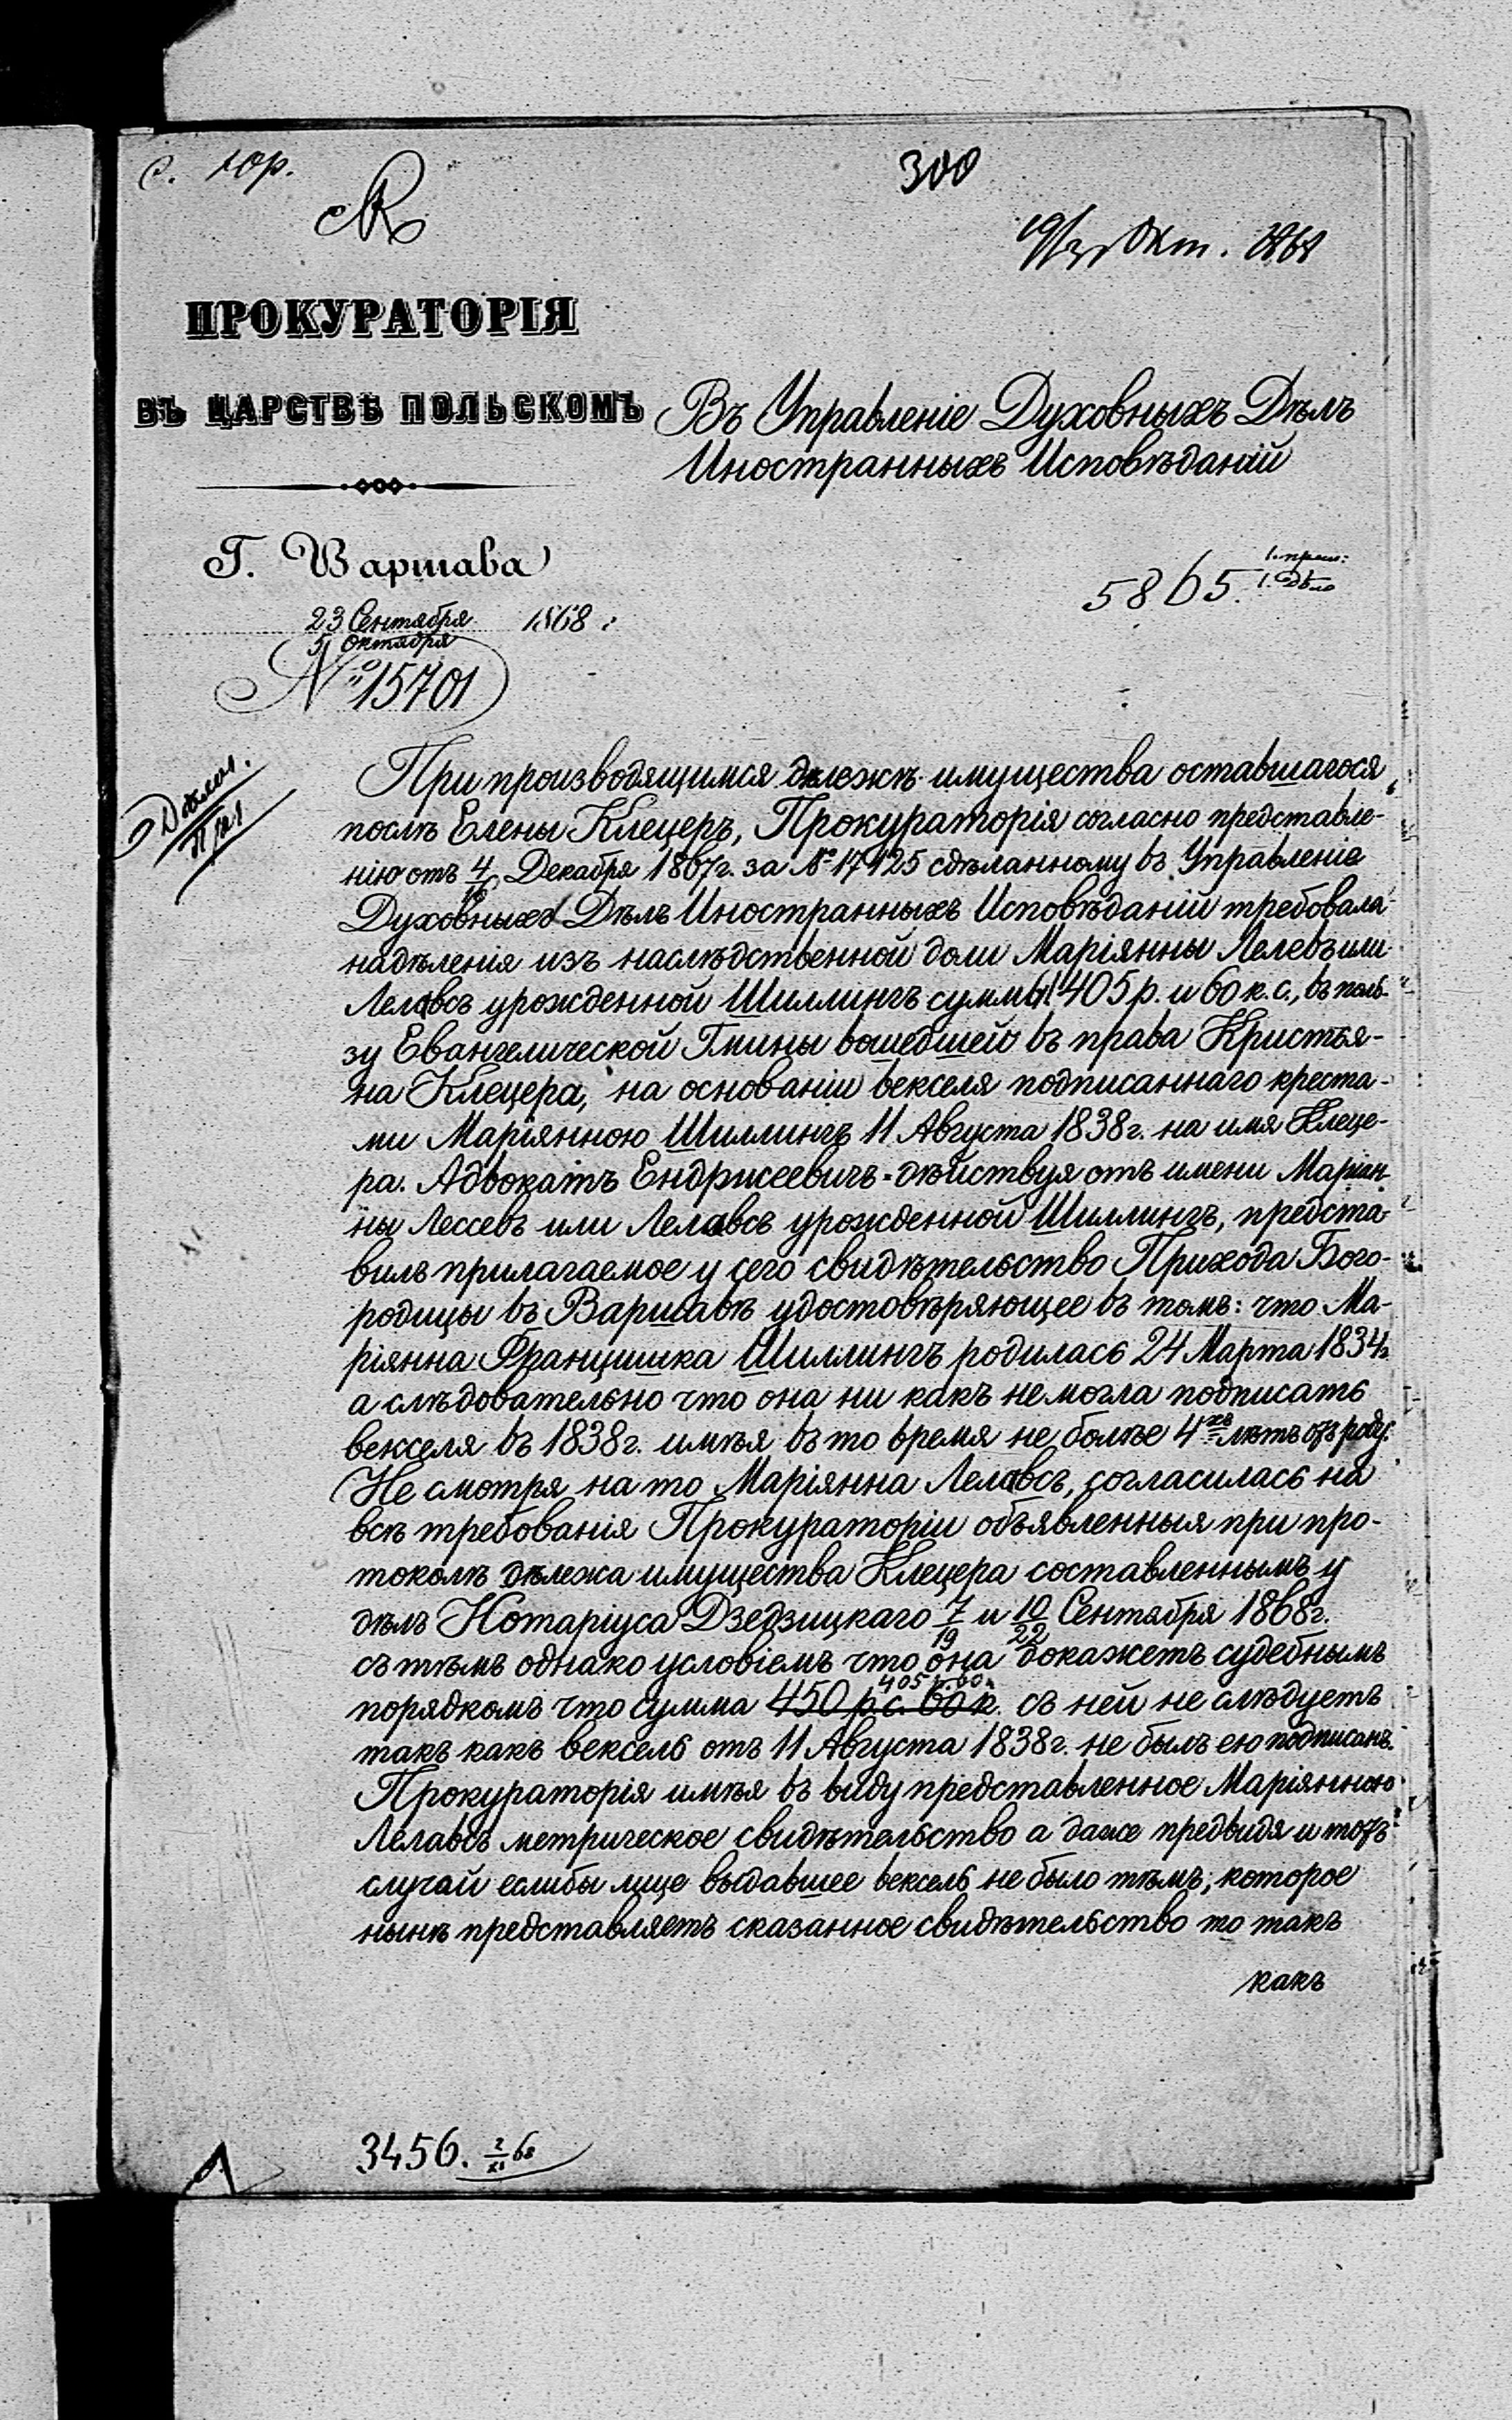 с. юр.
300
19/31 Окт. 1868
ПРОКУРАТОРІЯ
ВЪ ЦАРСТВѢ ПОЛЬСКОМЪ
Въ Управленіе Духовныхъ Дѣлъ
Иностранныхъ Исповѣданій
Г. Варшава
23 Сентября 1868 г
5 Октября
№ 15701
5865.
1. Дѣло
При производящимся дѣлежѣ имущества оставшагося
послѣ Елены Клецеръ, Прокураторія согласно представле-
нію отъ 4/16 Декабря 1867г. за № 17125 сдѣланному въ Управленіе
Духовныхъ Дѣлъ Иностранныхъ Исповѣданій требовала
надѣленія изъ наслѣдственной доли Маріянны Лелевъ или
Лелавсъ урожденной Шиллингъ суммы 405 р. и 60 к. с., въ поль-
зу Евангелической Гмины вошедшей въ права Кристья-
на Клецера, на основаніи векселя подписаннаго креста-
ми Маріянною Шиллингъ 11 Августа 1838г. на имя Клеце-
ра. Адвокатъ Ендрисеевичъ дѣйствуя отъ имени Маріян-
ны Лессевъ или Лелавсъ урожденной Шиллингъ, предста-
вилъ прилагаемое у сего свидѣтельство Прихода Бого-
родицы въ Варшавѣ удостовѣряющее въ томъ: что Ма-
ріянна Францишка Шиллингъ родилась 24 Марта 1834г.
а слѣдовательно что она ни какъ не могла подписать
векселя въ 1838г. имѣя въ то время не болѣе 4хъ лѣтъ отъ роду.
Не смотря на то Маріянна Лелавсъ, согласилась на
всѣ требованія Прокураторіи объявленныя при про-
токолѣ дѣлежа имущества Клецера составленнымъ у
дѣлъ Нотаріуса Дзедзицкаго 7/19 и 10/22 Сентября 1868г.
съ тѣмъ однако условіемъ что она докажетъ судебнымъ
405 р. 60 к.
порядкомъ что сумма 450 р. с. 60 к. съ ней не слѣдуетъ
такъ какъ вексель отъ 11 Августа 1838г. не былъ ею подписанъ.
Прокураторія имѣя въ виду представленное Маріянною
Лелавсъ метрическое свидѣтельство а даже предвидя и тотъ
случай еслибы лице выдавшее вексель не было тѣмъ, которое
нынѣ представляетъ сказанное свидѣтельство то такъ
какъ
3456. 2/XI 68